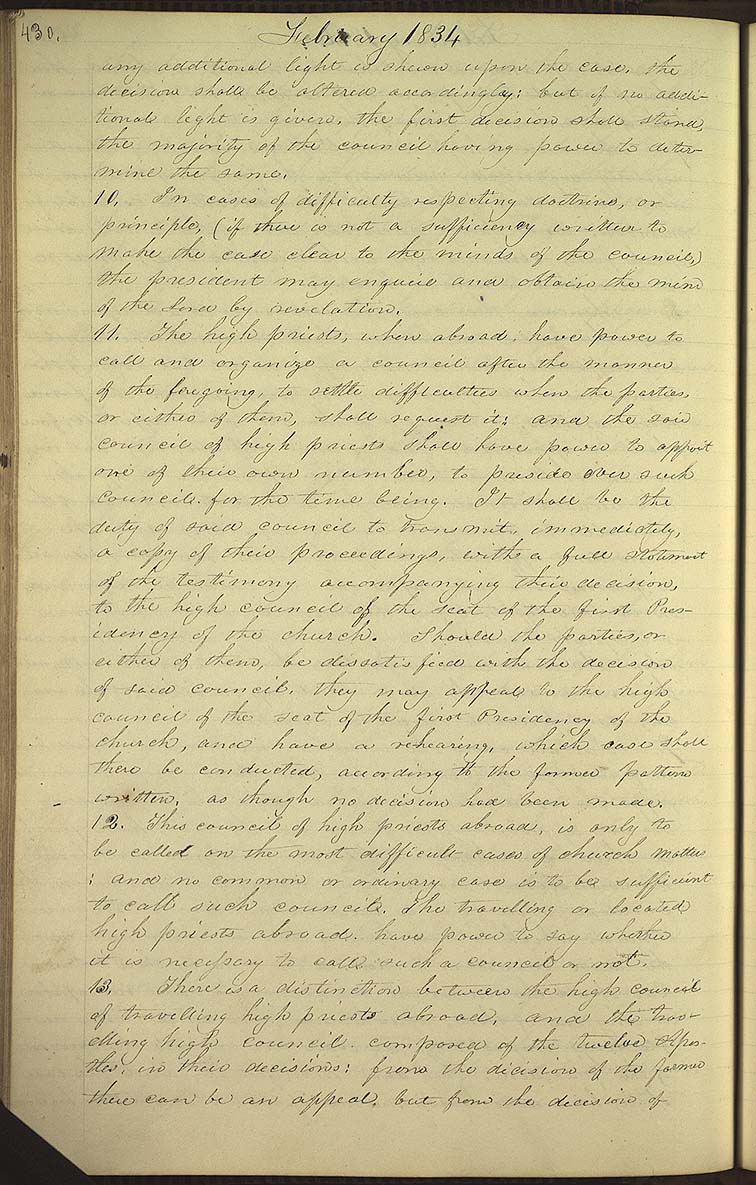 430.
February 1834
any additional light is shewn upon the case, the
decision shall be altered accordingly: but if no addi-
tional light is given, the first decision shall stand,
the majority of the council having power to deter-
mine the same.
10. In cases of difficulty respecting doctrine, or
principle, (if there is not a sufficiency written to
make the case clear to the minds of the council,)
the president may enquire and obtain the mind
of the Lord by revelation.
11. The high priests, when abroad, have power to
call and organize a council after the manner
of the foregoing, to settle difficulties when the parties,
or either of them, shall request it: and the said
council of high priests shall have power to appoint
one of their own number, to preside over such
council for the time being. It shall be the
duty of said council to transmit, immediately,
a copy of their proceedings, with a full statement
of the testimony accompanying their decision,
to the high council of the seat of the first Pres-
idency of the church. Should the parties, or
either of them, be dissatisfied with the decision
of said council, they may appeal to the high
council of the seat of the first Presidency of the
church, and have a rehearing, which case shall
there be conducted, according to the former pattern
written, as though no decision had been made.
12. This council of high priests abroad, is only to
be called on the most difficult cases of church matters
: and no common or ordinary case is to be sufficient
to call such council. The travelling or located
high priests abroad, have power to say whether
it is necessary to call such a council or not.
13. There is a distinction between the high council
of travelling high priests abroad, and the trav-
elling high council composed of the twelve Apos-
tles, in their decisions: from the decision of the former
there can be an appeal, but from the decision of